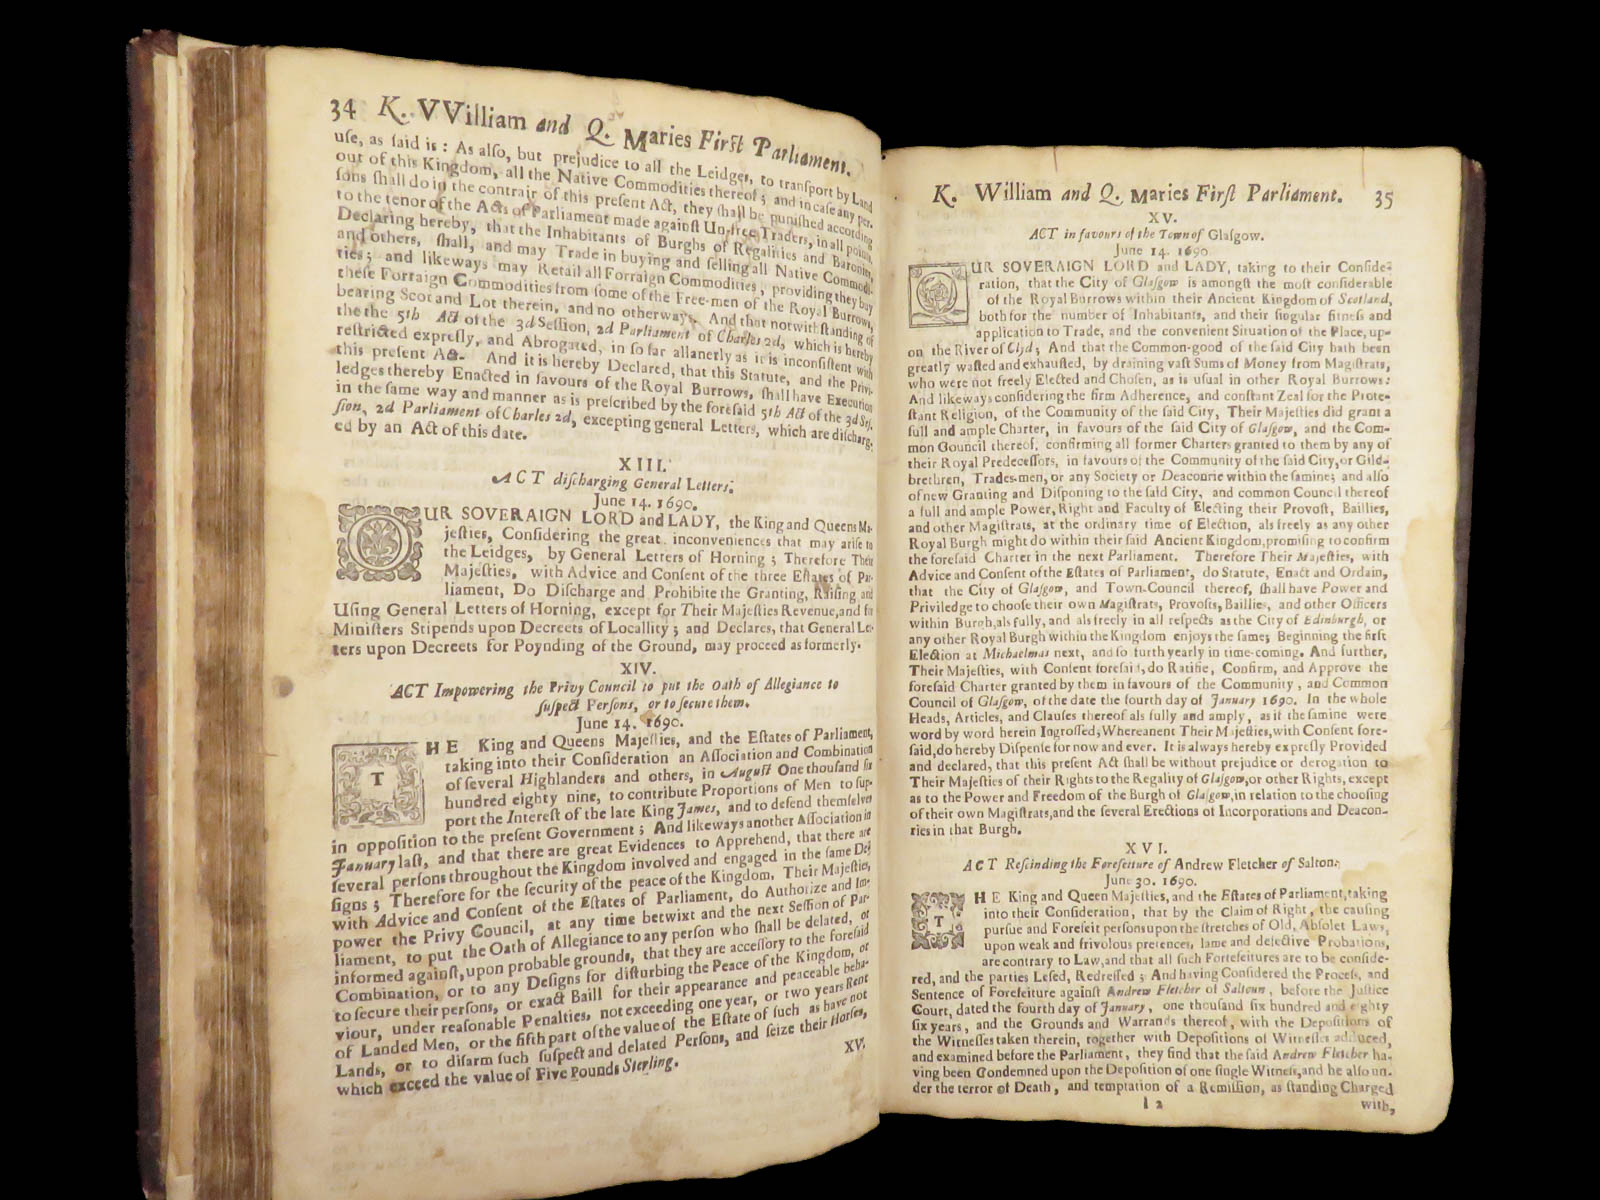 34 K. VVilliam and Q. Maries Firſt Parliament.
uſe, as ſaid is : As alſo, but prejudice to all the Leidges, to tranſport by Land
out of this Kingdom, all the Native Commodities thereof ; and in caſe any per-
ſons ſhall do in the contrair of this preſent Act, they ſhall be puniſhed according
to the tenor of the Acts of Parliament made againſt Un-free Traders, in all points,
Declaring hereby, that the Inhabitants of Burghs of Regalities and Baronies,
and others, ſhall, and may Trade in buying and ſelling all Native Commodi-
ties ; and likeways may Retail all Forraign Commodities, providing they buy
theſe Forraign Commodities from ſome of the Free-men of the Royal Burrows,
bearing Scot and Lot therein, and no otherways. And that notwithſtanding of
the the 5th Act of the 3d Seſſion, 2d Parliament of Charles 2d, which is hereby
reſtricted expreſly, and Abrogated, in ſo far allanerly as it is inconſiſtent with
this preſent Act. And it is hereby Declared, that this Statute, and the Privi-
ledges thereby Enacted in favours of the Royal Burrows, ſhall have Execution
in the ſame way and manner as is preſcribed by the foreſaid 5th Act of the 3d Seſ-
ſion, 2d Parliament of Charles 2d, excepting general Letters, which are diſcharg-
ed by an Act of this date.
XIII.
ACT diſcharging General Letters.
June 14. 1690.
OUR SOVERAIGN LORD and LADY, the King and Queens Ma-
jeſties, Conſidering the great inconveniences that may ariſe to
the Leidges, by General Letters of Horning ; Therefore Their
Majeſties, with Advice and Conſent of the three Eſtates of Par-
liament, Do Diſcharge and Prohibite the Granting, Raiſing and
Uſing General Letters of Horning, except for Their Majeſties Revenue, and for
Miniſters Stipends upon Decreets of Locallity ; and Declares, that General Le-
tters upon Decreets for Poynding of the Ground, may proceed as formerly.
XIV.
ACT Impowering the Privy Council to put the Oath of Allegiance to
ſuſpect Perſons, or to ſecure them.
June 14. 1690.
THE King and Queens Majeſties, and the Eſtates of Parliament,
taking into their Conſideration an Aſſociation and Combination
of ſeveral Highlanders and others, in Auguſt One thouſand ſix
hundred eighty nine, to contribute Proportions of Men to ſup-
port the Intereſt of the late King James, and to defend themſelves
in oppoſition to the preſent Government ; And likeways another Aſſociation in
January laſt, and that there are great Evidences to Apprehend, that there are
ſeveral perſons throughout the Kingdom involved and engaged in the ſame De-
ſigns ; Therefore for the ſecurity of the peace of the Kingdom, Their Majeſties,
with Advice and Conſent of the Eſtates of Parliament, do Authorize and Im-
power the Privy Council, at any time betwixt and the next Seſſion of Par-
liament, to put the Oath of Allegiance to any perſon who ſhall be delated, or
informed againſt, upon probable grounds, that they are acceſſory to the foreſaid
Combination, or to any Deſigns for diſturbing the Peace of the Kingdom, or
to ſecure their perſons, or exact Baill for their appearance and peaceable beha-
viour, under reaſonable Penalties, not exceeding one year, or two years Rent
of Landed Men, or the fifth part of the value of the Eſtate of ſuch as have not
Lands, or to diſarm ſuch ſuſpect and delated Perſons, and ſeize their Horſes,
which exceed the value of Five Pounds Sterling.
XV.
K. William and Q. Maries Firſt Parliament. 35
XV.
ACT in favours of the Town of Glaſgow.
June 14. 1690
OUR SOVERAIGN LORD and LADY, taking to their Conſide-
ration, that the City of Glaſgow is amongſt the moſt conſiderable
of the Royal Burrows within their Ancient Kingdom of Scotland,
both for the number of Inhabitants, and their ſingular fitneſs and
application to Trade, and the convenient Situation of the Place, up-
on the River of Clyd ; And that the Common-good of the ſaid City hath been
greatly waſted and exhauſted, by draining vaſt Sums of Money from Magiſtrats,
who were not freely Elected and Choſen, as is uſual in other Royal Burrows :
And likeways conſidering the firm Adherence, and conſtant Zeal for the Prote-
ſtant Religion, of the Community of the ſaid City, Their Majeſties did grant a
full and ample Charter, in favours of the ſaid City of Glaſgow, and the Com-
mon Council thereof, confirming all former Charters granted to them by any of
their Royal Predeceſſors, in favours of the Community of the ſaid City, or Gild-
brethren, Trades-men, or any Society or Deaconrie within the ſamine ; and alſo
of new Granting and Diſponing to the ſaid City, and common Council thereof
a full and ample Power, Right and Faculty of Electing their Provoſt, Baillies,
and other Magiſtrats, at the ordinary time of Election, als freely as any other
Royal Burgh might do within their ſaid Ancient Kingdom, promiſing to confirm
the foreſaid Charter in the next Parliament. Therefore Their Majeſties, with
Advice and Conſent of the Eſtates of Parliament, do Statute, Enact and Ordain,
that the City of Glaſgow, and Town-Council thereof, ſhall have Power and
Priviledge to chooſe their own Magiſtrats, Provoſts, Baillies, and other Officers
within Burgh, als fully, and als freely in all reſpects as the City of Edinburgh, or
any other Royal Burgh within the Kingdom enjoys the ſame ; Beginning the firſt
Election at Michaelmas next, and ſo furth yearly in time-coming. And further,
Their Majeſties, with Conſent foreſaid, do Ratifie, Confirm, and Approve the
foreſaid Charter granted by them in favours of the Community, and Common
Council of Glaſgow, of the date the fourth day of January 1690. In the whole
Heads, Articles, and Clauſes thereof als fully and amply, as if the ſamine were
word by word herein Ingroſſed ; Whereanent Their Majeſties, with Conſent fore-
ſaid, do hereby Diſpenſe for now and ever. It is always hereby expreſly Provided
and declared, that this preſent Act ſhall be without prejudice or derogation to
Their Majeſties of their Rights to the Regality of Glaſgow, or other Rights, except
as to the Power and Freedom of the Burgh of Glaſgow, in relation to the chooſing
of their own Magiſtrats, and the ſeveral Erections of Incorporations and Deacon-
ries in that Burgh.
XVI.
ACT Reſcinding the Forefeiture of Andrew Fletcher of Salton.
June 30. 1690.
THE King and Queen Majeſties, and the Eſtates of Parliament, taking
into their Conſideration, that by the Claim of Right, the cauſing
purſue and Forefeit perſons upon the ſtretches of Old, Abſolet Laws,
upon weak and frivolous pretences, lame and defective Probations,
are contrary to Law, and that all ſuch Forefeitures are to be conſide-
red, and the parties Leſed, Redreſſed ; And having Conſidered the Proceſs, and
Sentence of Forefeiture againſt Andrew Fletcher of Saltoun, before the Juſtice
Court, dated the fourth day of January, one thouſand ſix hundred and eighty
ſix years, and the Grounds and Warrands thereof, with the Depoſitions of
the Witneſſes taken therein, together with Depoſitions of Witneſſes adduced,
and examined before the Parliament, they find that the ſaid Andrew Fletcher ha-
ving been Condemned upon the Depoſition of one ſingle Witneſs, and he alſo un-
der the terror of Death, and temptation of a Remiſſion, as ſtanding Charged
I 2 with,